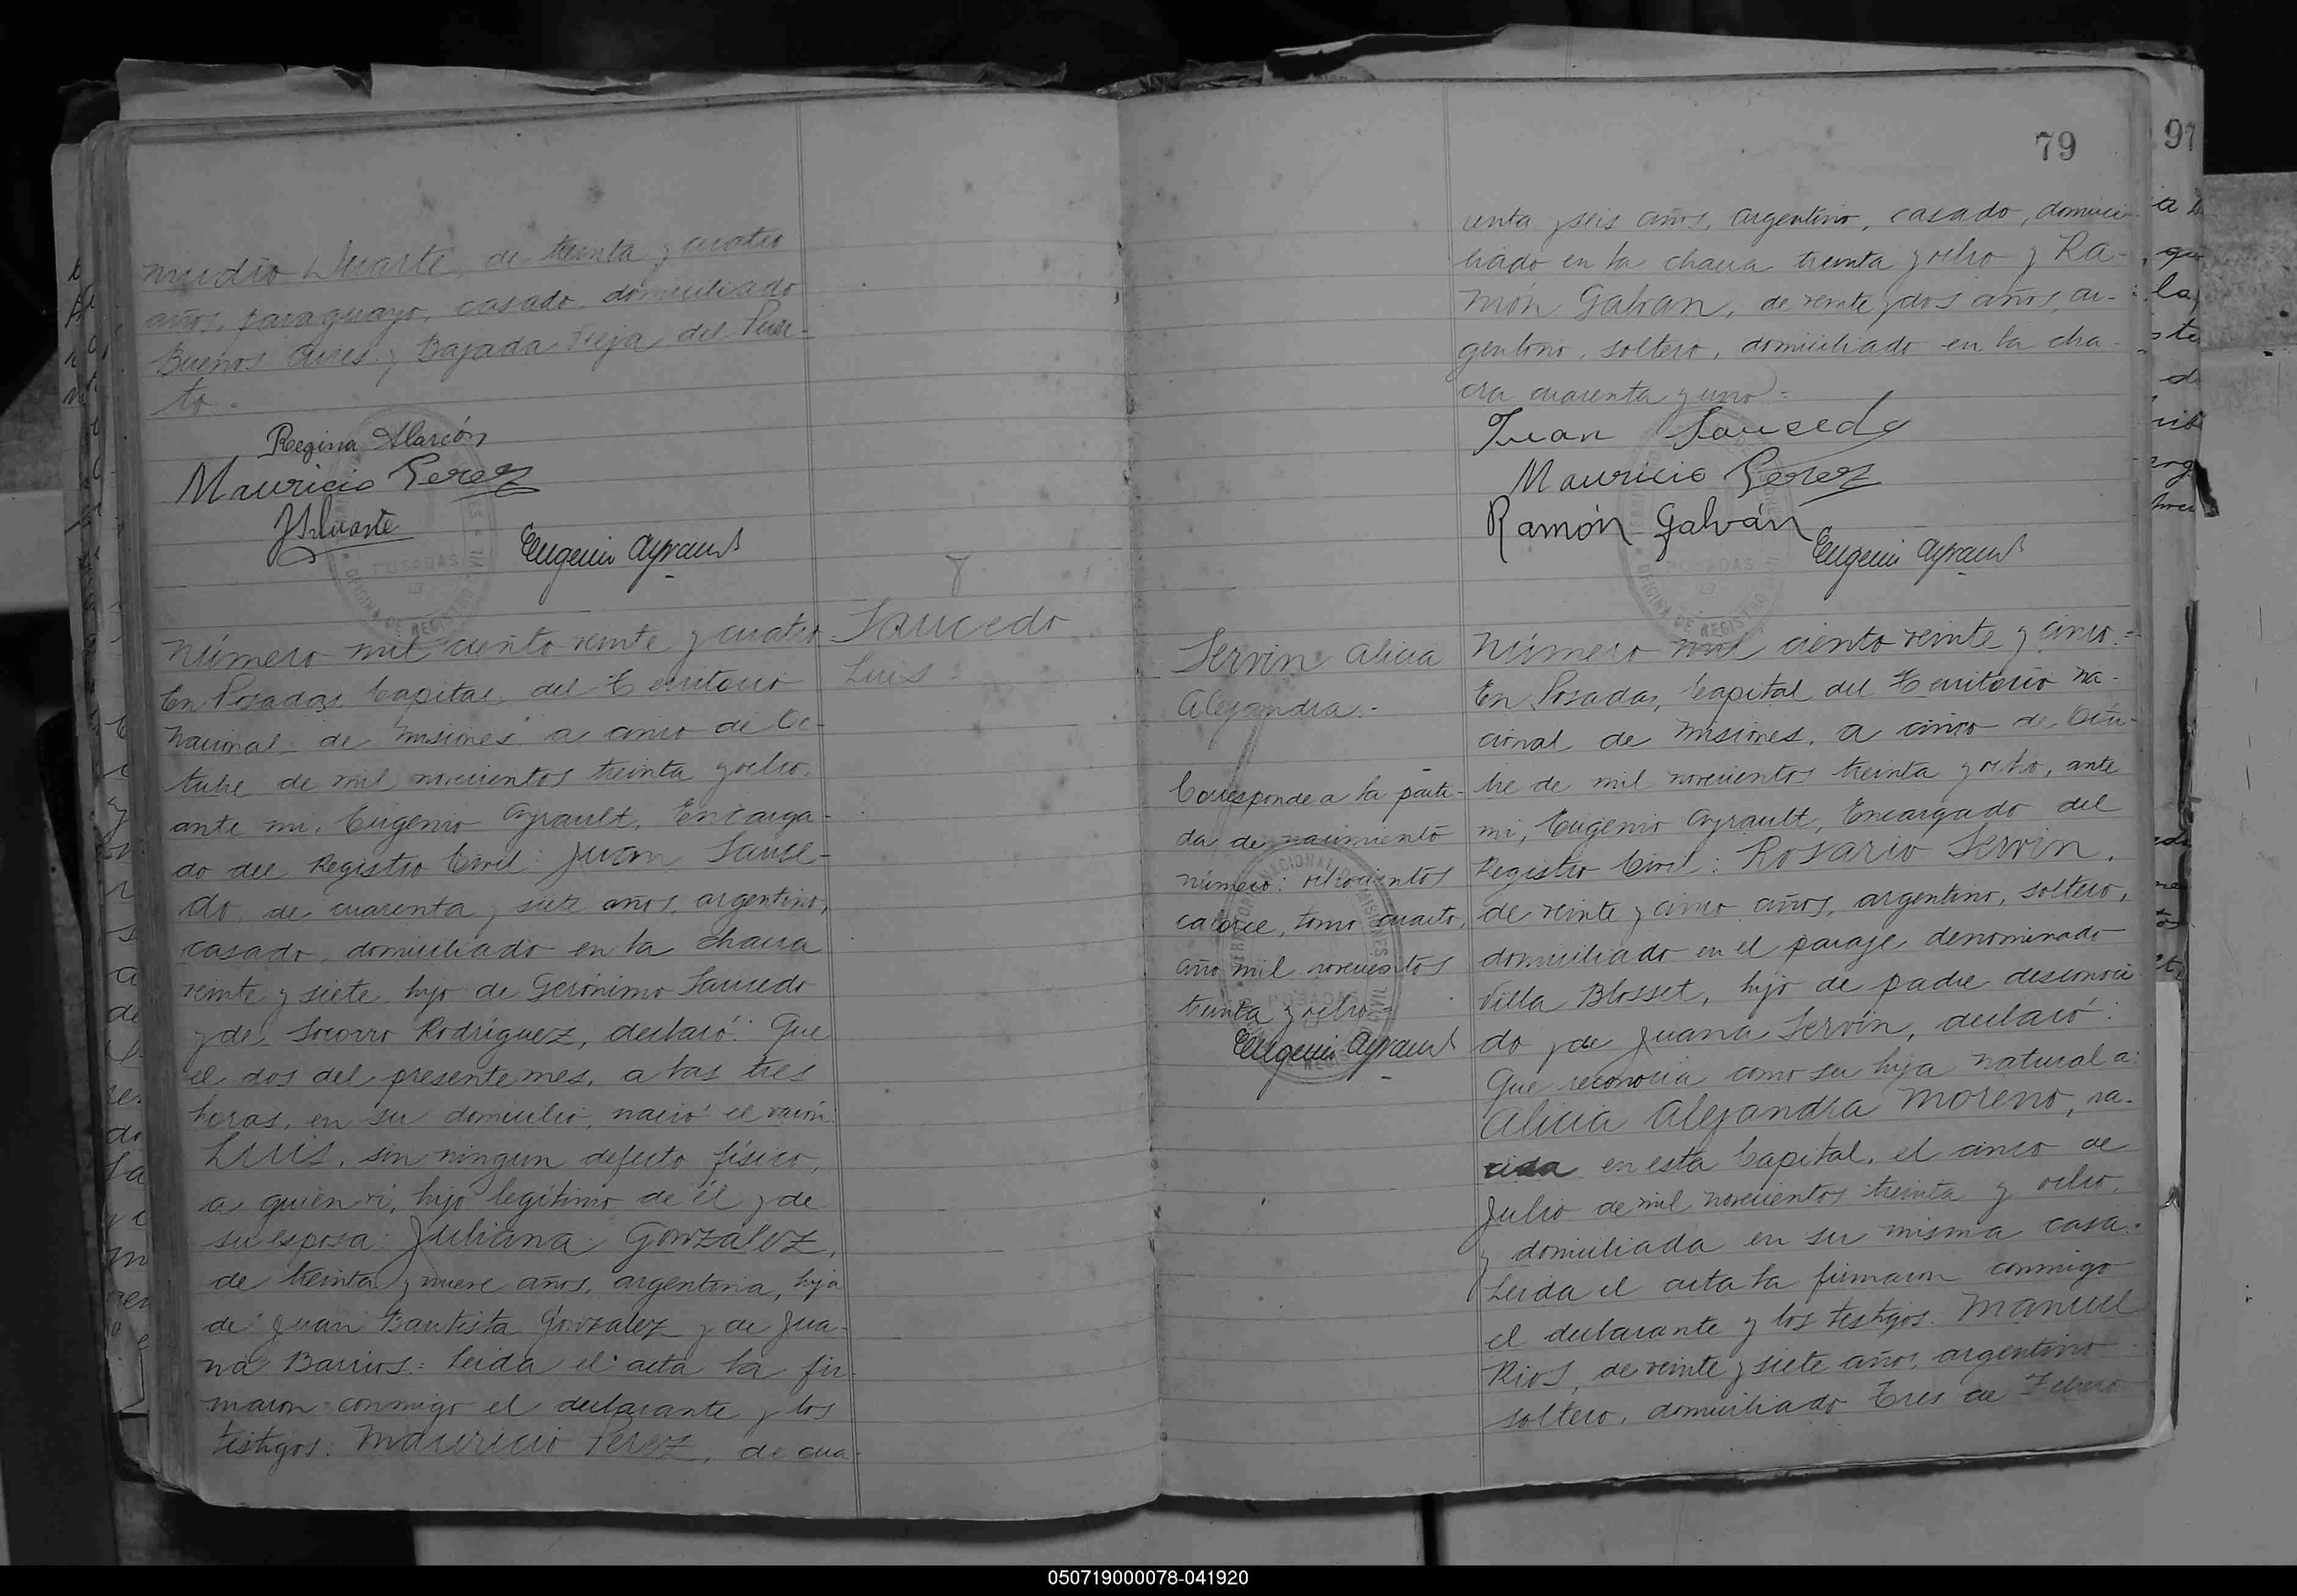 mudio Duarte, de treinta y cuatro
años, paraguayo, casado, domiciliado
Buenos Aires y Bajada Vieja del Puer-
to.-
Regina Alarcón
Mauricio Perez
Duarte
Eugenio Ayrault
POSADAS
OFICINA DE REGISTRO CIVIL
Número mil ciento veinte y cuatro
En Posadas, Capital del Territorio
Nacional de Misiones a cinco de Oc-
tubre de mil novecientos treinta y ocho,
ante mi, Eugenio Ayrault, Encarga-
do del Registro Civil: Juan Sauce-
do, de cuarenta y siete años, argentino,
casado, domiciliado en la chacra
veinte y siete hijo de Gerónimo Saucedo
y de Socorro Rodríguez, declaró: Que
el dos del presente mes, a las tres
horas, en su domicilio, nació el varón:
Luis, sin ningun defecto físico,
a quien vi, hijo legítimo de él y de
su esposa: Juliana Gonzalez,
de treinta y nueve años, argentina, hija
de Juan Bautista Gonzalez y de Jua-
na Barrios.= Leida el acta la fir-
maron conmigo el declarante y los
testigos: Mauricio Perez, de cua-
Saucedo
Luis.-
79
97
renta y seis años, argentino, casado, domici-
liado en la chacra treinta y ocho y Ra-
món Galvan, de veinte y dos años, ar-
gentino, soltero, domiciliado en la cha-
cra cuarenta y uno=
Juan Saucedo
Mauricio Perez
Ramón Galván
Eugenio Ayrault
POSADAS
OFICINA DE REGISTRO
Servin Alicia
Alejandra.-
Corresponde a la parti-
da de nacimiento
número: ochocientos
catorce, tomo cuarto,
año mil novecientos
treinta y ocho=
Eugenio Ayrault
POSADAS
Número mil ciento veinte y cinco.=
En Posadas, Capital del Territorio Na-
cional de Misiones, a cinco de Octu-
bre de mil novecientos treinta y ocho, ante
mi, Eugenio Ayrault, Encargado del
Registro Civil: Rosario Servin,
de veinte y cinco años, argentino, soltero,
domiciliado en el paraje denominado
Villa Blosset, hijo de padre desconoci
do y de Juana Servin, declaró:
Que reconocia como su hija natural a:
Alicia Alejandra Moreno, na-
cida en esta Capital, el cinco de
Julio de mil novecientos treinta y ocho,
y domiciliada en su misma casa.
Leida el acta la firmaron conmigo
el declarante y los testigos: Manuel
Rios, de veinte y siete años, argentino
soltero, domiciliado Tres de Febrero
050719000078-041920